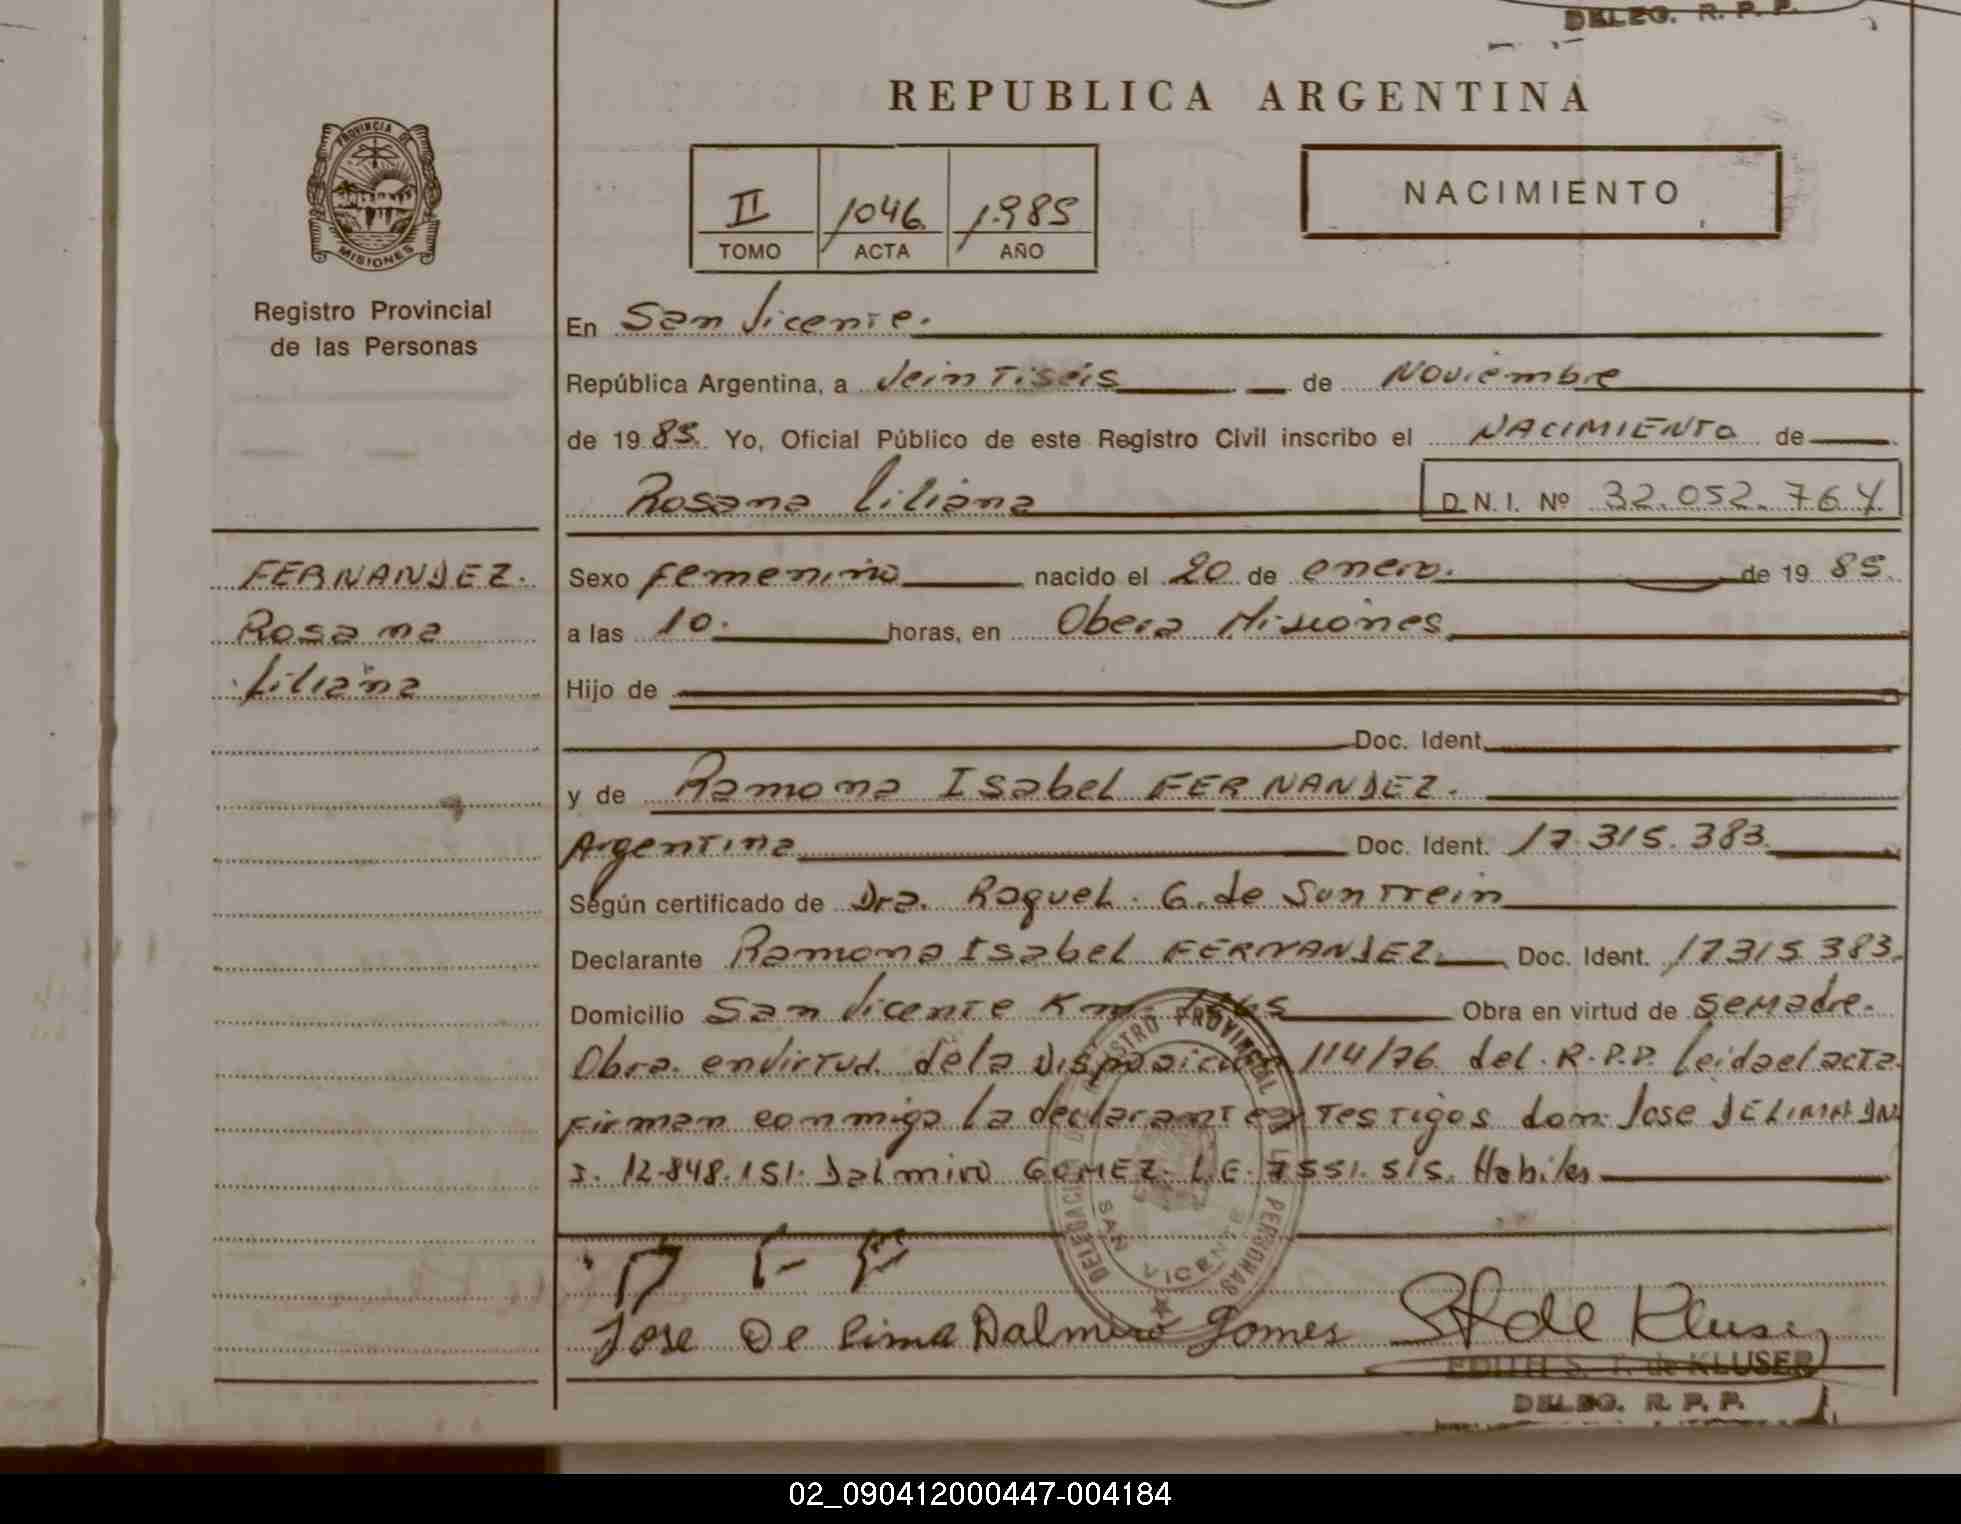 DELEG. R. P. P.
REPUBLICA ARGENTINA
PROVINCIA DE
MISIONES
II
TOMO
1046
ACTA
1.985
AÑO
NACIMIENTO
Registro Provincial
de las Personas
En San Vicente.
República Argentina, a Veintiséis de Noviembre
de 19 85. Yo, Oficial Público de este Registro Civil inscribo el NACIMIENTO de
Rosana Liliana D.N.I. Nº 32.052.764
FERNANDEZ.
Rosana
Liliana
Sexo femenino nacido el 20 de enero. de 19 85.
a las 10. horas, en Obera Misiones
Hijo de
Doc. Ident.
y de Ramona Isabel FERNANDEZ.
Argentina Doc. Ident. 17.315.383.
Según certificado de Dra. Raquel. G. de
Declarante Ramona Isabel FERNANDEZ. Doc. Ident. 17315383.
Domicilio San Vicente Km. Obra en virtud de SeMadre.
Obra. envirtud. dela Disposición 114/76 del. R.P.P. Leidael acta.
Firman conmigo la declarante y Testigos don: Jose DELIMA DN
I. 12.848.151. Dalmiro GOMEZ. L.E. 7551.515. Habiles
REGISTRO PROVINCIAL DE LAS PERSONAS
DELEGACION
SAN VICENTE
Jose De Lima Dalmiro Gomes
de Kluser
EDITH S. T. de KLUSER
DELEG. R. P. P.
02_090412000447-004184